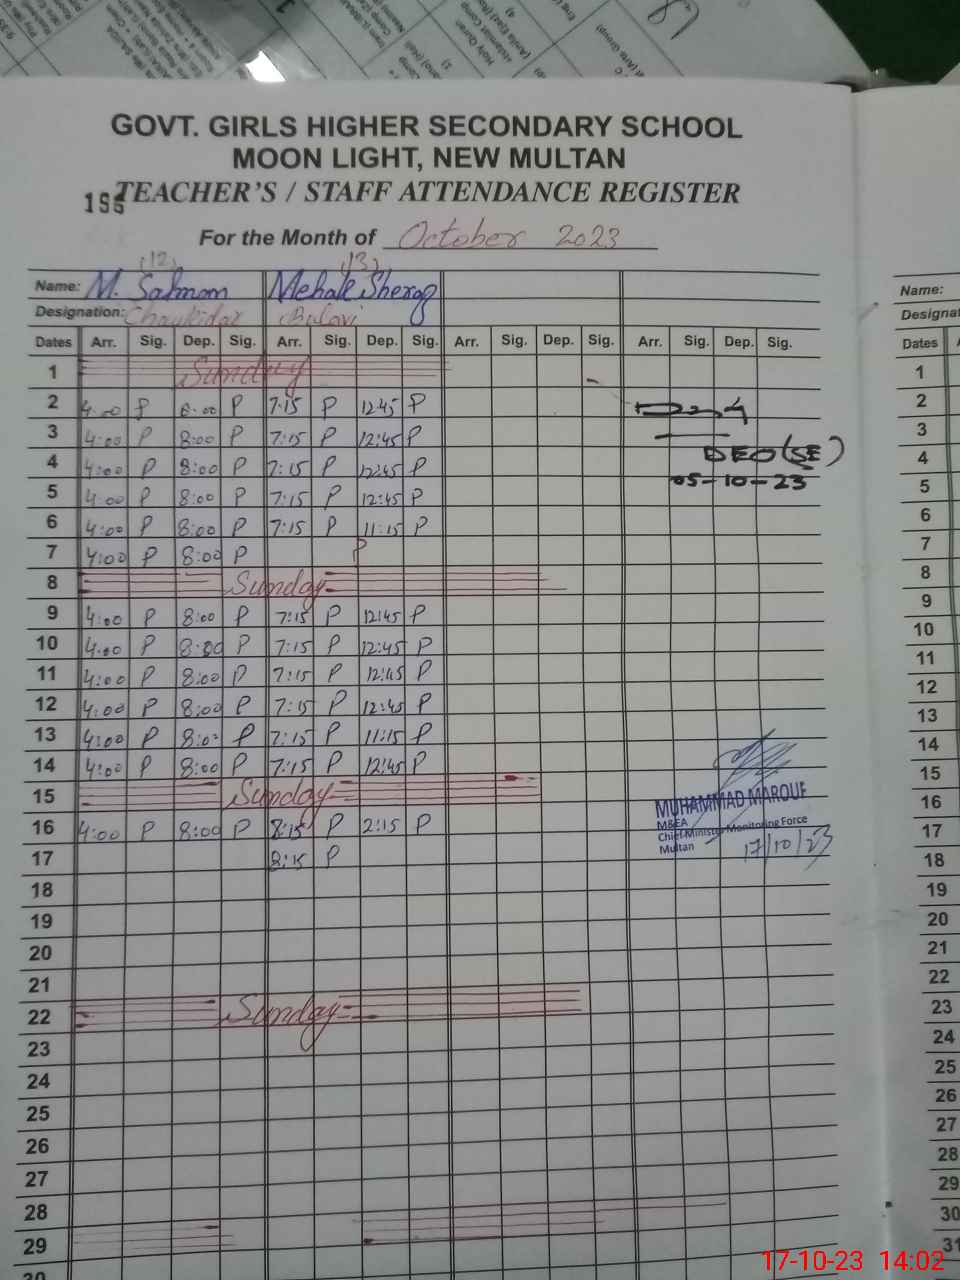 GOVT. GIRLS HIGHER SECONDARY SCHOOL
MOON LIGHT, NEW MULTAN
195 TEACHER'S / STAFF ATTENDANCE REGISTER
For the Month of October 2023
(12) (13)
Name: M. Salman Mehak Sheraz
Designation: Chaukidar
Dates Arr. Sig. Dep. Sig. Arr. Sig. Dep. Sig. Arr. Sig. Dep. Sig. Arr. Sig. Dep. Sig.
1 Sunday
2 4:00 P 8:00 P 7:15 P 12:45 P
3 4:00 P 8:00 P 7:15 P 12:45 P
4 4:00 P 8:00 P 7:15 P 12:45 P DEO (SE)
5 4:00 P 8:00 P 7:15 P 12:45 P 05-10-23
6 4:00 P 8:00 P 7:15 P 11:15 P
7 4:00 P 8:00 P P
8 Sunday
9 4:00 P 8:00 P 7:15 P 12:45 P
10 4:00 P 8:00 P 7:15 P 12:45 P
11 4:00 P 8:00 P 7:15 P 12:45 P
12 4:00 P 8:00 P 7:15 P 12:45 P
13 4:00 P 8:00 P 7:15 P 11:15 P
14 4:00 P 8:00 P 7:15 P 12:45 P
15 Sunday
MUHAMMAD MAROUF
16 4:00 P 8:00 P 8:15 P 2:15 P
M&EA
Chief Minister Monitoring Force
17 8:15 P
Multan 17/10/23
18
19
20
21
22 Sunday
23
24
25
26
27
28
29
30
Name:
Dates
1
2
3
4
5
6
7
8
9
10
11
12
13
14
15
16
17
18
19
20
21
22
23
24
25
26
27
28
29
30
31
17-10-23 14:02